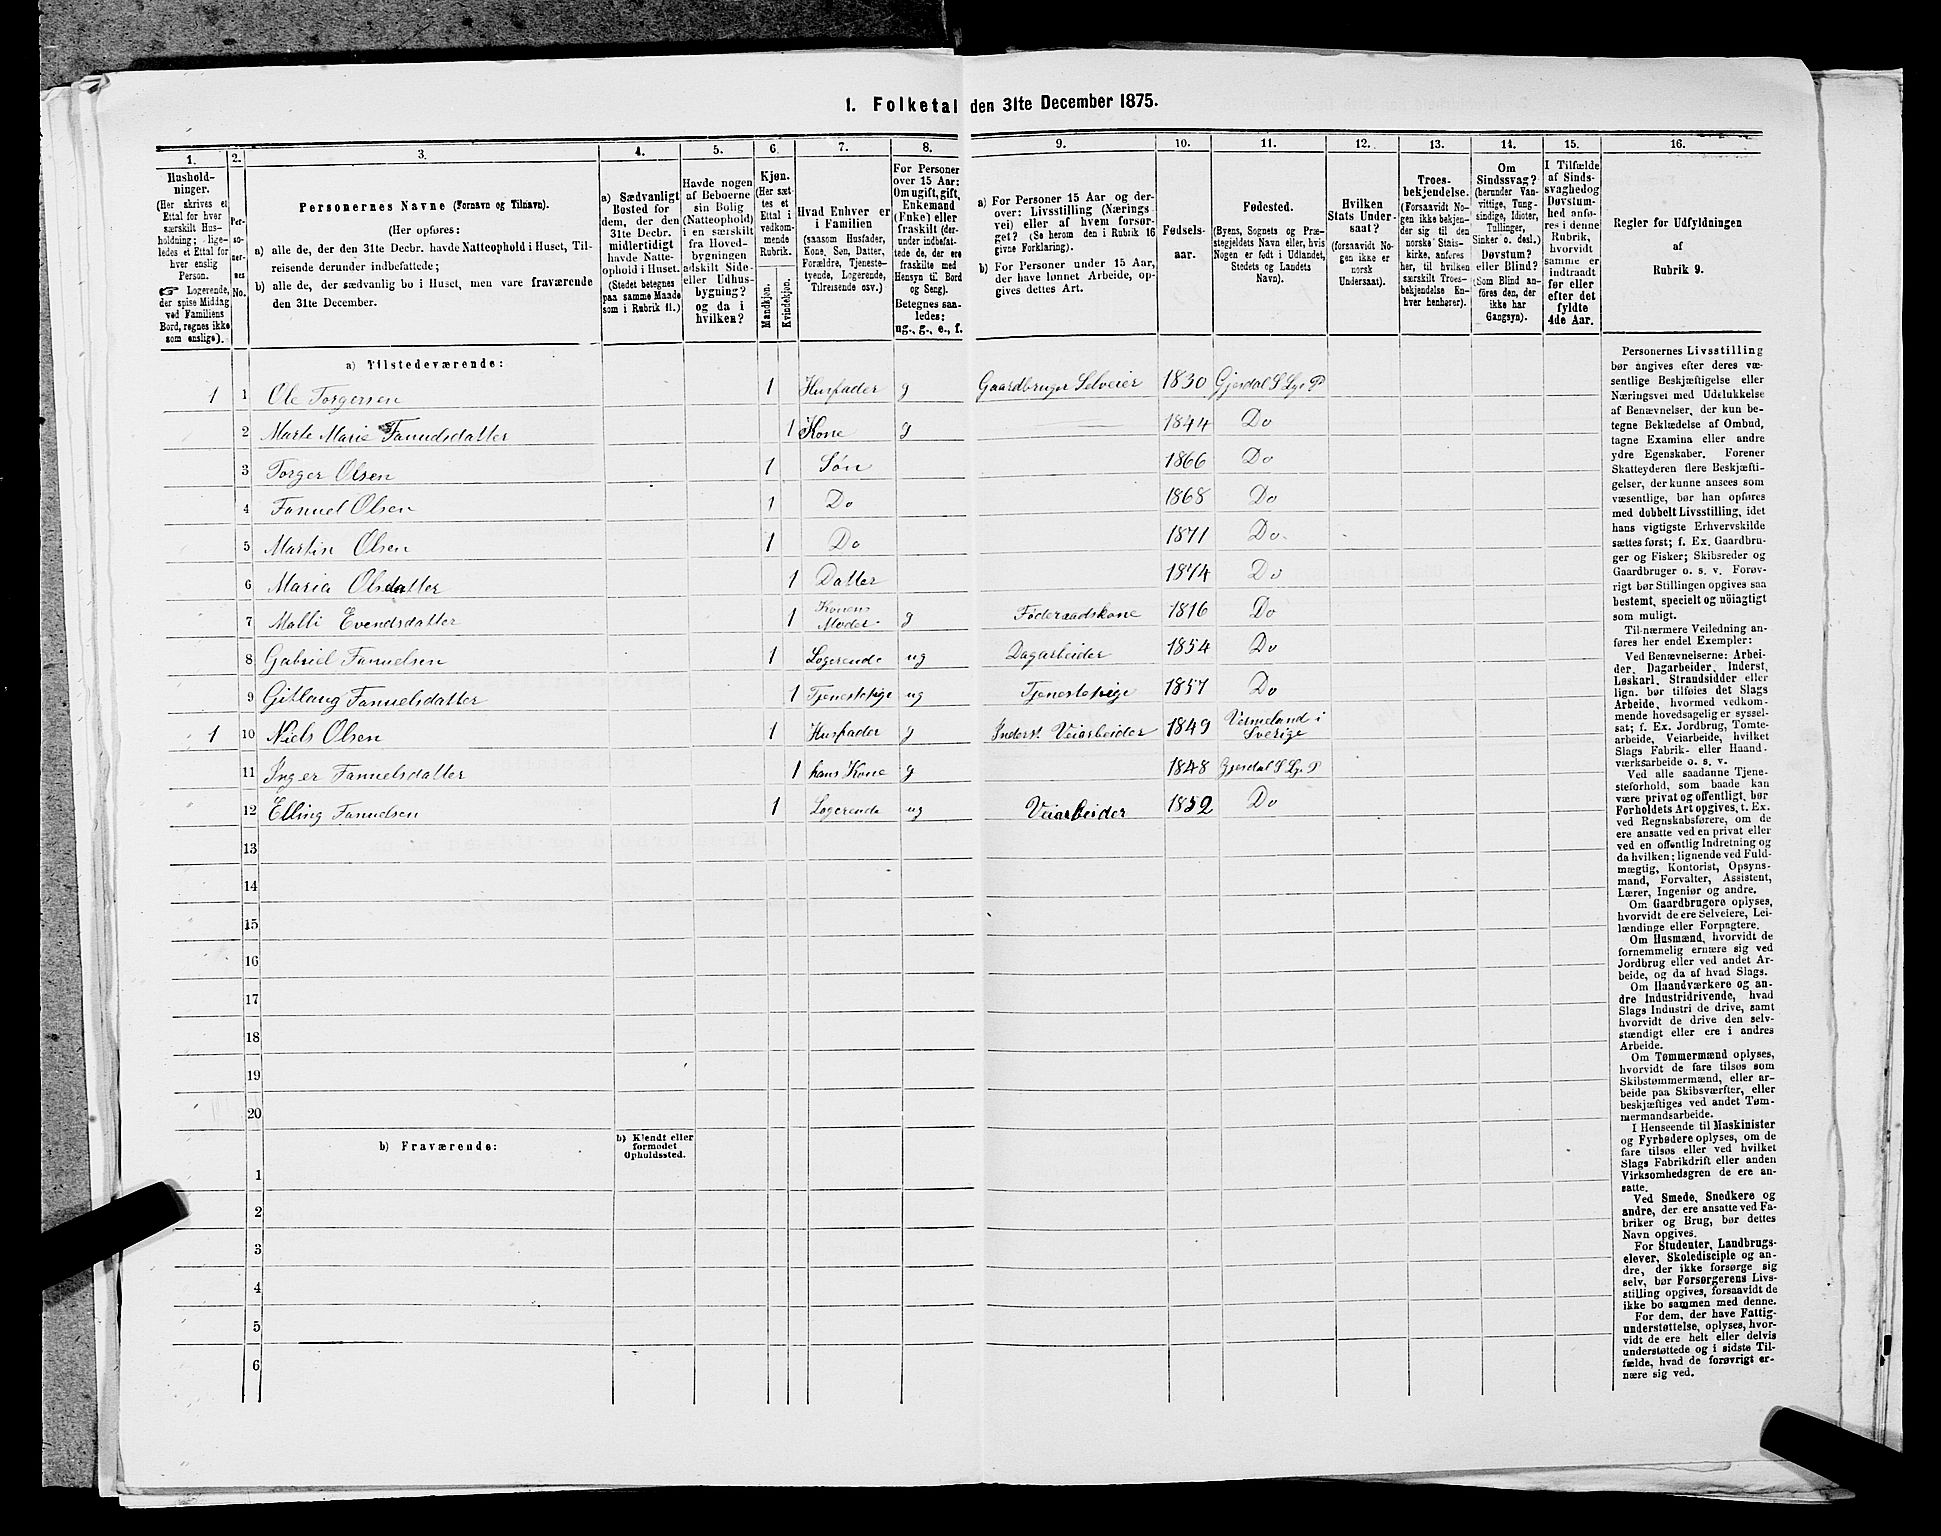 1. Folketal den 31te December 1875.
1. 2. 3. 4. 5. 6. 7. 8. 9. 10. 11. 12. 13. 14. 15. 16.
Husholdninger.
(Her skrives et
Ettal for hver
særskilt Husholdning;
ligeledes et Ettal for
hver enslig
Person.
☞ Logerende,
der spise Middag
ved Familiens
Bord, regnes ikke
som enslige).
Personernes No.
Personernes Navne (Fornavn og Tilnavn).
(Her opføres:
a) alle de, der den 31te Decbr. havde Natteophold i Huset, Tilreisende derunder indbefattede;
b) alle de, der sædvanlig bo i Huset, men vare fraværende
den 31te December.
a) Sædvanligt
Bosted for
dem, der den
31te Decbr.
midlertidigt
havde Natteophold i Huset.
(Stedet betegnes
paa samme Maade
som i Rubrik 11.)
Havde nogen
af Beboerne
sin Bolig
(Natteophold)
i en særskilt
fra Hovedbygningen
adskilt Side-
eller Udhusbygning?
og da i
hvilken?
Kjøn.
(Her sættes et
Ettal i
vedkommende
Rubrik.
Mandkjøn.
Kvindekjøn.
Hvad Enhver er
i Familien
(saasom Husfader,
Kone, Søn, Datter,
Forældre, Tjenestetyende, Logerende,
Tilreisende osv.)
For Personer
over 15 Aar:
Om ugift, gift,
Enkemand
(Enke) eller
fraskilt (derunder indbefattede de, der ere
fraskilte med
Hensyn til Bord
og Seng).
Betegnes saaledes:
ug., g., e., f.
a) For Personer 15 Aar og derover: Livsstilling (Næringsvei) eller af hvem forsørget? (Se herom den i Rubrik 16
givne Forklaring).
b) For Personer under 15 Aar,
der have lønnet Arbeide, opgives dettes Art.
Fødselsaar.
Fødested.
(Byens, Sognets og Præstegjeldets Navn eller, hvis
Nogen er født i Udlandet,
Stedets og Landets
Navn).
Hvilken
Stats Undersaat?
(forsaavidt Nogen ikke er
norsk
Undersaat).
Troesbekjendelse.
(Forsaavidt Nogen ikke bekjender sig til den
norske Statskirke, anføres
her, til hvilken
særskilt Troesbekjendelse Enhver henhører).
Om
Sindssvag?
(herunder Vanvittige, Tungsindige, Idioter,
Tullinger,
Sinker o. desl.)
Døvstum?
eller Blind?
(Som Blind anføres den, der
ikke har
Gangsyn).
I Tilfælde
af Sindssvaghedog
Døvstumhed anføres i denne
Rubrik,
hvorvidt
samme er
indtraadt
før eller
efter det
fyldte
4de Aar.
Regler for Udfyldningen
af
Rubrik 9.
a) Tilstedeværende:
1 1 Ole Torgersen 1 Husfader g Gaardbruger Selveier 1830 Gjesdal S Lye P
2 Marte Marie Fanuelsdatter 1 Kone g 1844 Do
3 Torger Olsen 1 Søn 1866 Do
4 Fanuel Olsen 1 Do 1868 Do
5 Martin Olsen 1 Do 1871 Do
6 Maria Olsdatter 1 Datter 1874 Do
7 Malli Evendsdatter 1 Konens Moder g Føderaadskone 1816 Do
8 Gabriel Fanuelsen 1 Logerende ug Dagarbeider 1854 Do
9 Gitlaug Fanuelsdatter 1 Tjenestepige ug Tjenestepige 1857 Do
1 10 Niels Olsen 1 Husfader g Inderst. Veiarbeider 1849 Vermeland i Sverige
11 Inger Fanuelsdatter 1 hans Kone g 1848 Gjesdal S Lye P
12 Elling Fanuelsen 1 Logerende ug Veiarbeider 1852 Do
13
14
15
16
17
18
19
20
b) Fraværende:
b) Kjendt eller
formodet
Opholdssted.
1
2
3
4
5
6
Personernes Livsstilling
bør angives efter deres væsentlige Beskjæftigelse eller
Næringsvei med Udelukkelse
af Benævnelser, der kun betegne Beklædelse af Ombud,
tagne Examina eller andre
ydre Egenskaber. Forener
Skatteyderen flere Beskjæftigelser, der kunne ansees som
væsentlige, bør han opføres
med dobbelt Livsstilling, idet
hans vigtigste Erhvervskilde
sættes først; f. Ex. Gaardbruger og Fisker; Skibsreder og
Gaardbruger o. s. v. Forøvrigt bør Stillingen opgives saa
bestemt, specielt og nöiagtigt
som muligt.
Til nærmere Veiledning anføres her endel Exempler:
Ved Benævnelserne: Arbeider, Dagarbeider, Inderst,
Løskarl, Strandsidder eller
lign. bør tilføies det Slags
Arbeide, hvormed vedkommende hovedsagelig er sysselsat; f. Ex. Jordbrug, Tomtearbeide, Veiarbeide, hvilket
Slags Fabrik- eller Haandværksarbeide o. s. v.
Ved alle saadanne Tjenesteforhold, som baade kan
være privat og offentligt, bør
Forholdets Art opgives, t. Ex.
ved Regnskabsførere, om de
ere ansatte ved en privat eller
ved en offentlig Indretning og
da hvilken; lignende ved Fuldmægtig, Kontorist, Opsynsmand, Forvalter, Assistent,
Lærer, Ingeniør og andre.
Om Gaardbrugere oplyses,
hvorvidt de ere Selveiere, Leilændinge eller Forpagtere.
Om Husmænd, hvorvidt de
fornemmelig ernære sig ved
Jordbrug eller ved andet Arbeide, og da af hvad Slags.
Om Haandværkere og andre Industridrivende, hvad
Slags Industri de drive, samt
hvorvidt de drive den selvstændigt eller ere i andres
Arbeide.
Om Tømmermænd oplyses,
hvorvidt de fare tilsøs som
Skibstømmermænd, eller arbeide paa Skibsværfter, eller
beskjæftiges ved andet Tømmermandsarbeide.
I Henseende til Maskinister
og Fyrbødere oplyses, om de
fare tilsøs eller ved hvilket
Slags Fabrikdrift eller anden
Virksomhedsgren de ere ansatte.
Ved Smede, Snedkere og
andre, der ere ansatte ved Fabriker og Brug, bør dettes
Navn opgives.
For Studenter, Landbrugselever, Skoledisciple og andre, der ikke forsørge sig
selv, bør Forsørgerens Livsstilling opgives, forsaavidt de
ikke bo sammen med denne.
For dem, der have Fattigunderstøttelse, oplyses, hvorvidt de ere helt eller delvis
understøttede og i sidste Tilfælde, hvad de forøvrigt ernære sig ved.